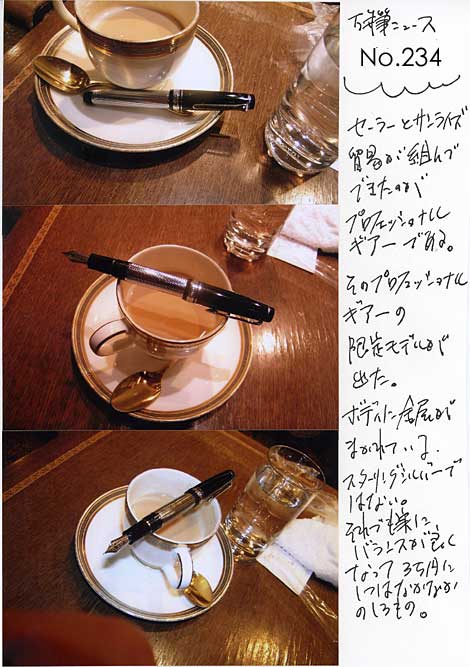 万年筆ニュース
No.234
セーラーとサンライズ
貿易が組んで
できたのが
プロフェッショナル
ギアーである。
そのプロフェッショナル
ギアーの
限定モデルが
出た。
ボディに金属が
まかれている.
スターリングシルバーで
はない。
それでも楽に、
バランスが良く
なって3万円に
してはなかなか
のしろもの。